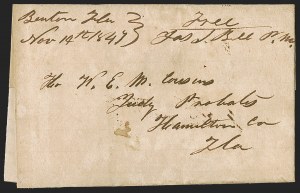 Benton Fla
Nov 14th 1847
Free
Jas. J. Bell P. M.
Ho W. E. M. Cousins
Judg Probate
Hamilton Co
Fla